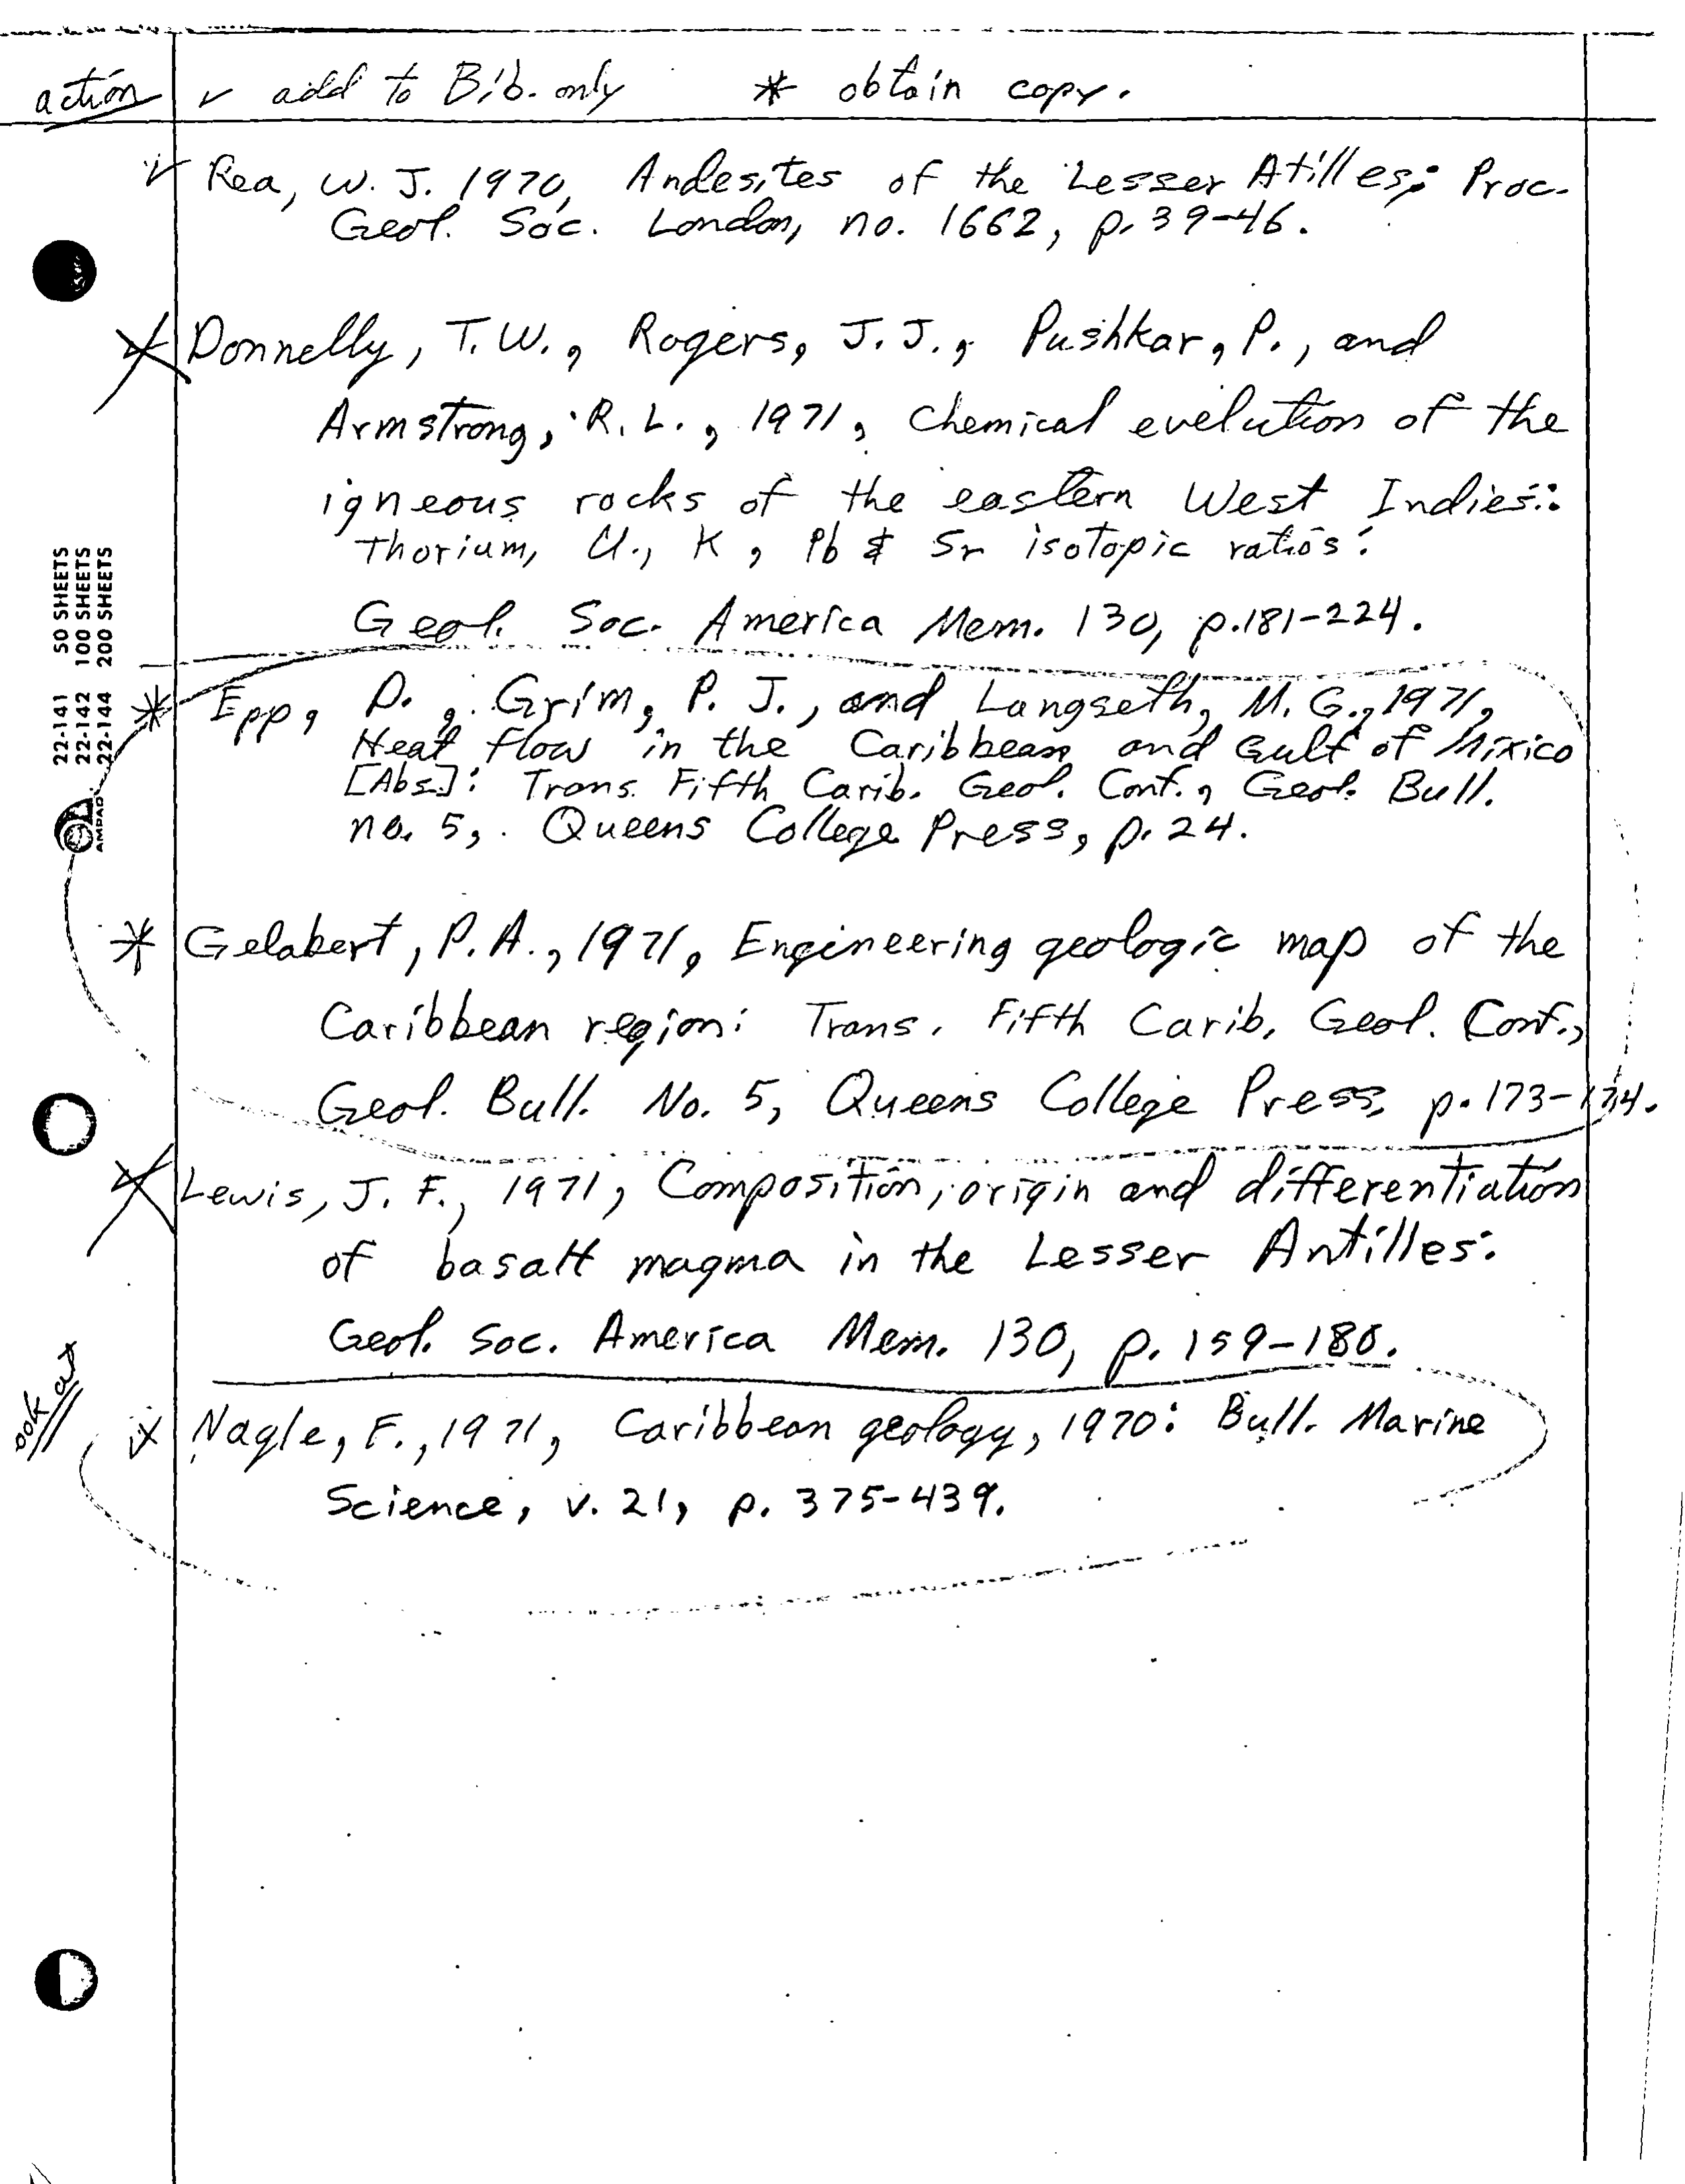 action ✓ add to Bib. only * obtain copy.
✓ Rea, W. J. 1970, Andesites of the Lesser Atilles: Proc.
Geol. Soc. London, no. 1662, p. 39-46.
* Donnelly, T.W., Rogers, J.J., Pushkar, P., and
Armstrong, R.L., 1971, Chemical evelution of the
igneous rocks of the eastern West Indies:
Thorium, U., K, Pb & Sr isotopic ratios:
Geol. Soc. America Mem. 130, p.181-224.
* Epp, D., Grim, P. J., and Langseth, M. G., 1971,
Heat flow in the Caribbean and Gulf of Mixico
[Abs.]: Trans. Fifth Carib. Geol. Conf., Geol. Bull.
no. 5, Queens College Press, p. 24.
* Gelabert, P.A., 1971, Engineering geologic map of the
Caribbean region: Trans. Fifth Carib. Geol. Conf.,
Geol. Bull. No. 5, Queens College Press, p. 173-174.
* Lewis, J. F., 1971, Composition, origin and differentiation
of basalt magma in the Lesser Antilles:
Geol. Soc. America Mem. 130, p. 159-180.
ook at
* Nagle, F., 1971, Caribbean geology, 1970: Bull. Marine
Science, v. 21, p. 375-439.
22-141 50 SHEETS
22-142 100 SHEETS
22-144 200 SHEETS
AMPAD